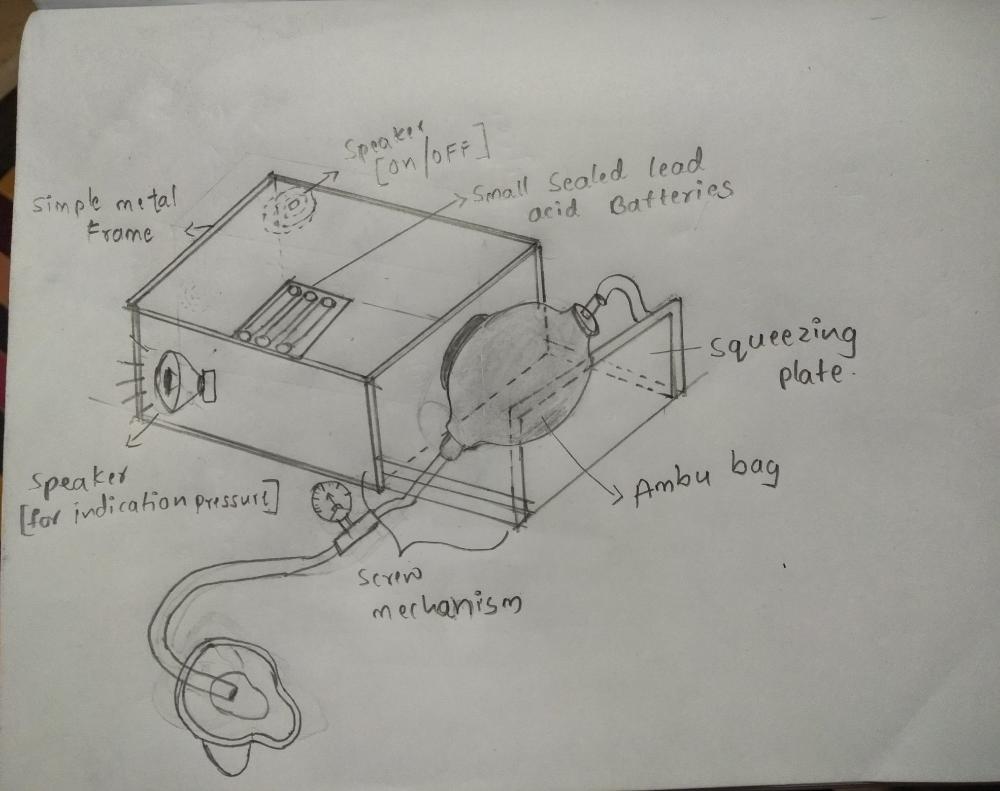 Speaker
[on/OFF]
Small Sealed lead
acid Batteries
Simple metal
Frame
Squeezing
plate.
Speaker
[for indication pressure]
Ambu bag
Screw
mechanism